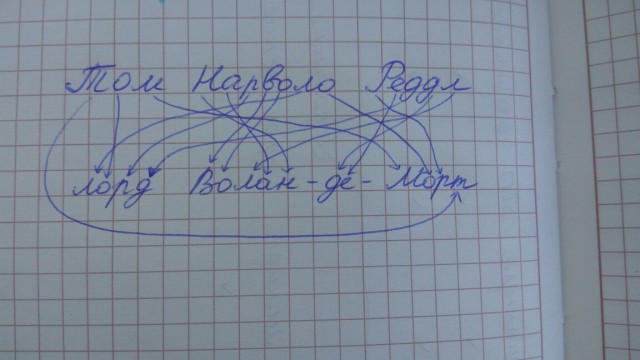 Том Нарволо Реддл
лорд Волан-де-Морт